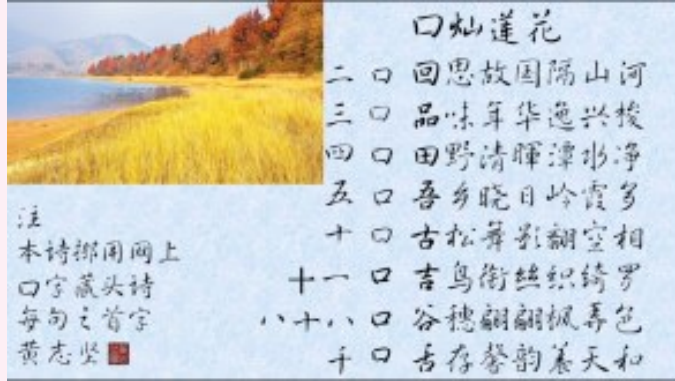 口灿莲花
二口 回思故国隔山河
三口 品味年华逸兴梭
四口 田野清晖潭水净
五口 吾乡晓日岭霞多
十口 古松舞影翻空相
十一口 吉鸟衔丝织绮罗
八十八口 谷穗翩翩枫弄色
千口 舌存馨韵养天和
注
本诗挪用网上
口字藏头诗
每句之首字
黄志坚